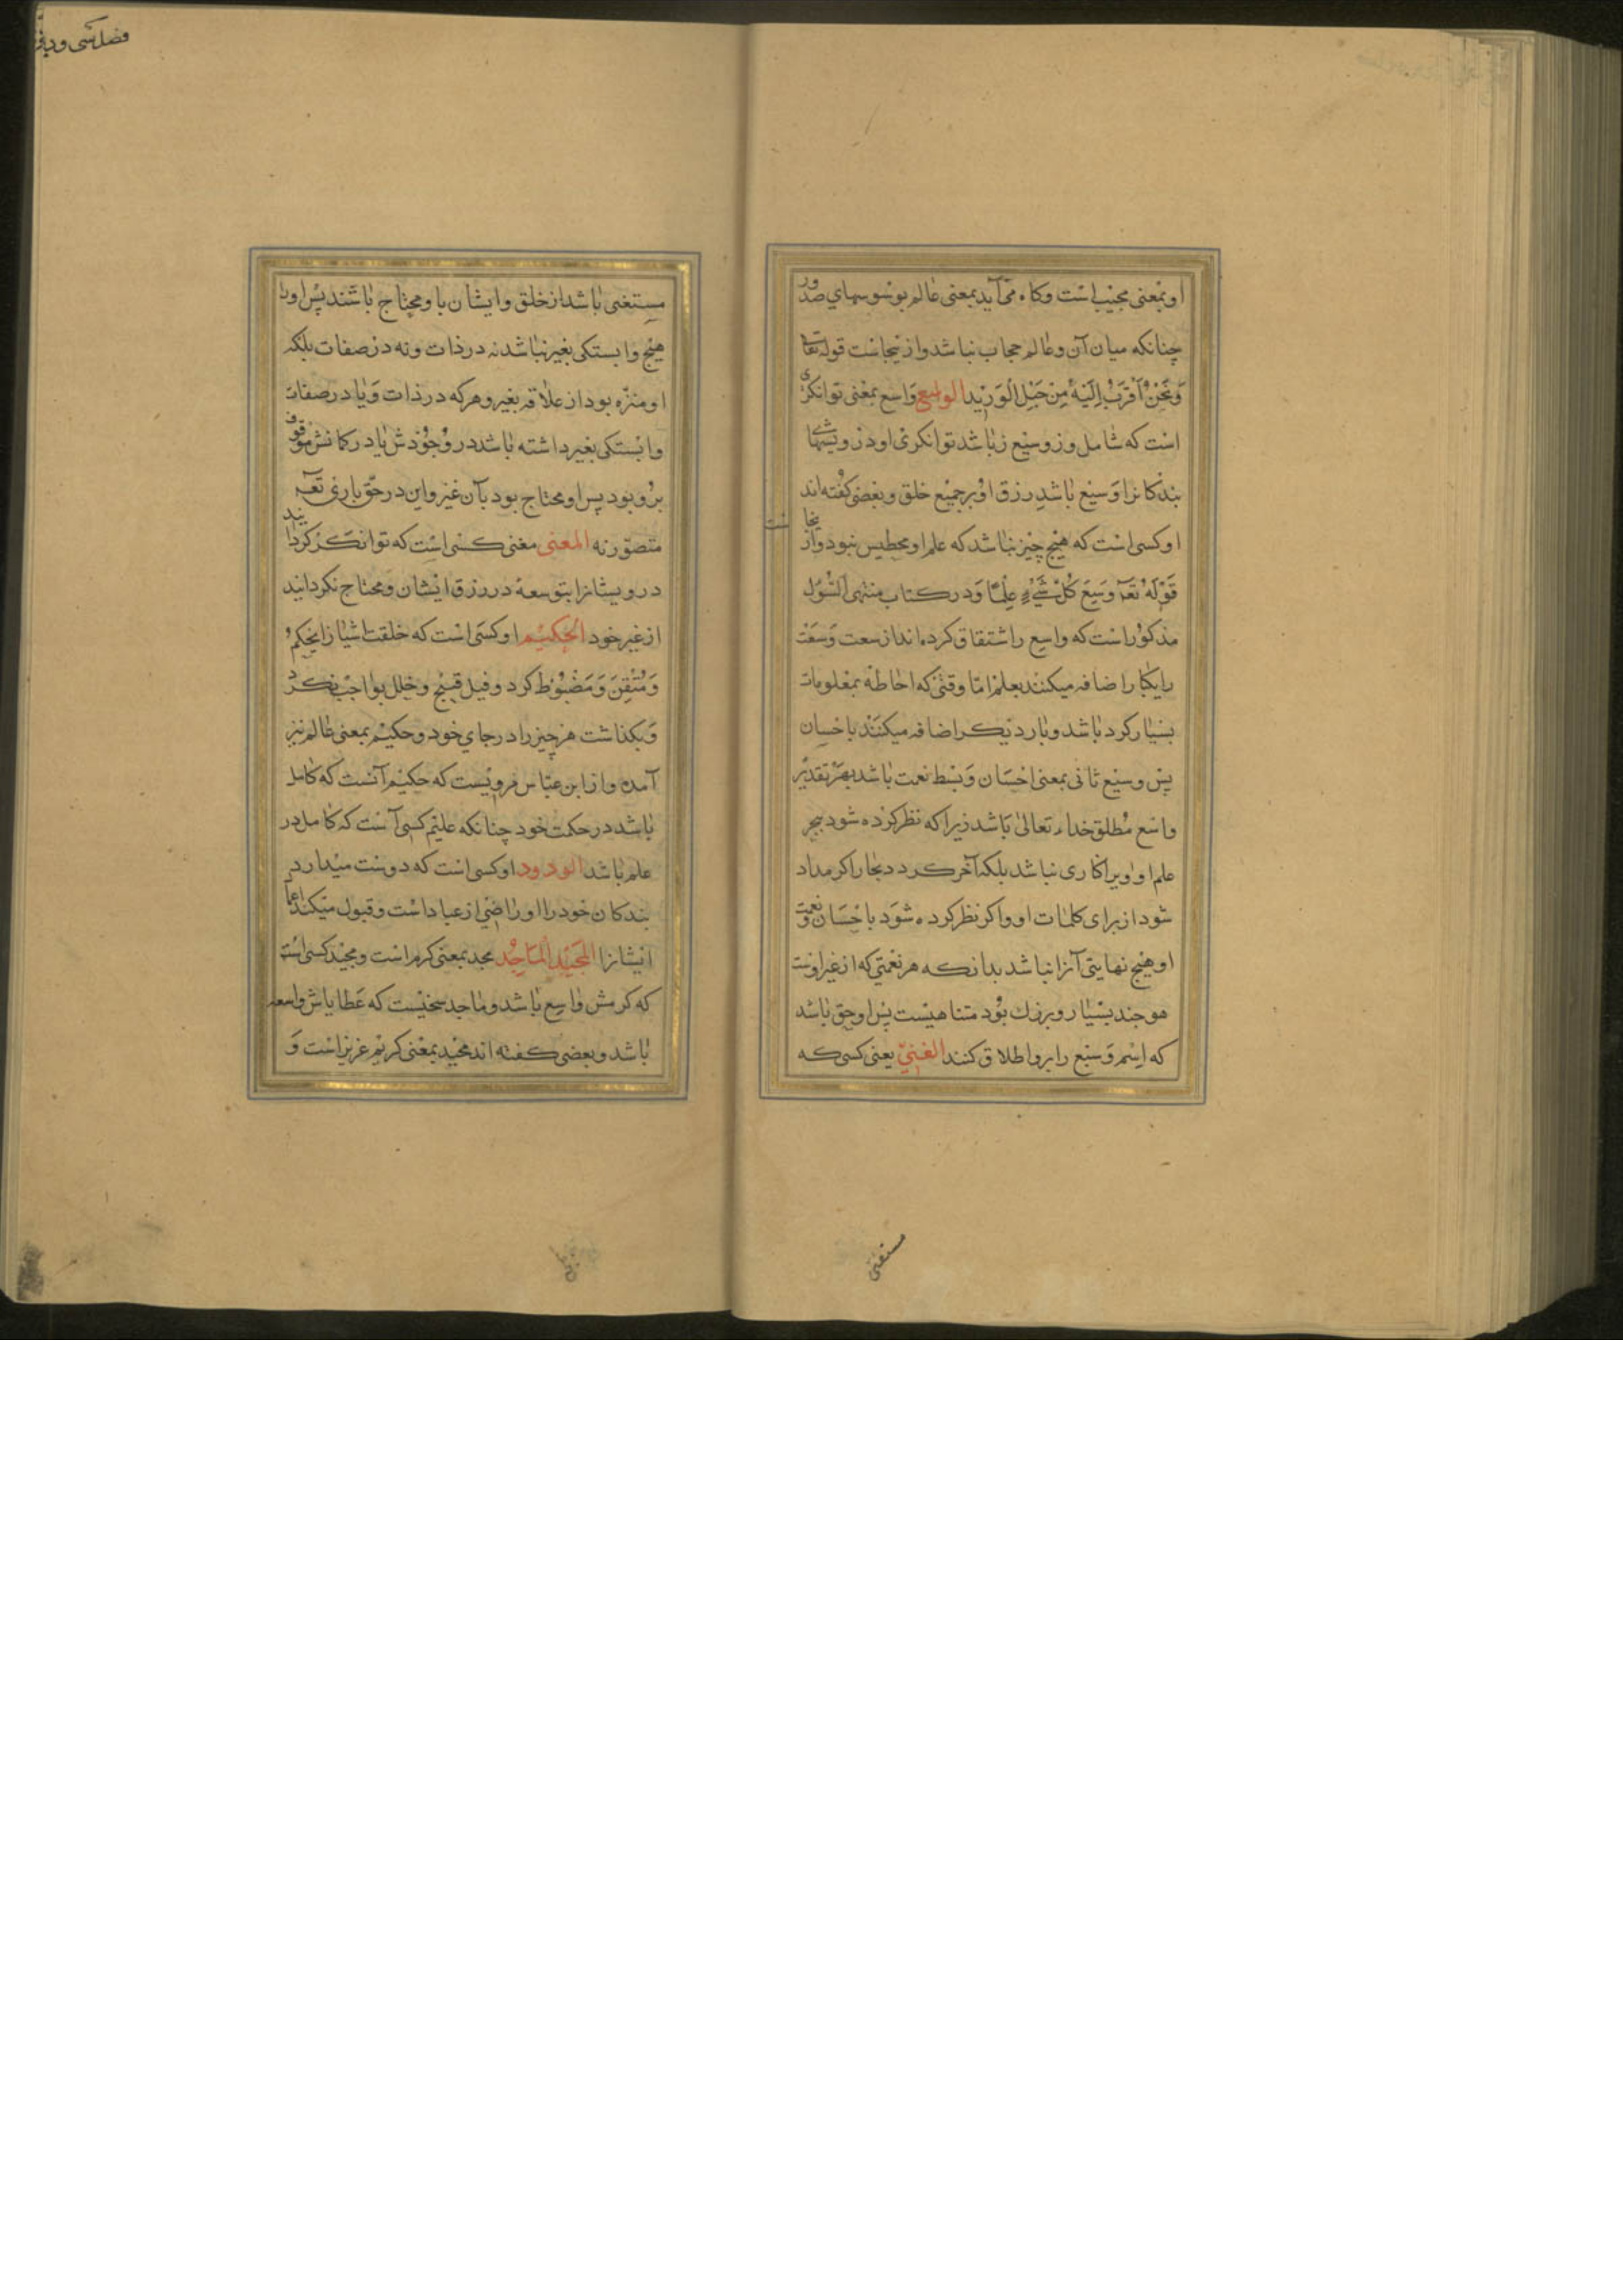 او بمعنی مجیب است و کاه می آید بمعنی عالم بوسوسهای صدور
چنانکه میان آن و عالم حجاب نباشد و از نیجاست قوله تعا
وَنَحْنُ اَقْرَبُ اِلَیْهِ مِنْ حَبْلِ الْوَرِیدِ الواسع وَاسع بمعنی توانکری
است که شامل و
باشد توانکری او درویشیها
بندکانرا وَسیع باشد رزق او بر جمیع خلق و بعضی کفته اند
او کسی است که هیچ چیز نباشد که علم او محیطیس نبود و از نیجاست
قَوْلَهُ تَعَ وَسِعَ کُلَّ شَیْءٍ عِلْمًا وَ در کتاب منتهی السّؤل
مذکور است که واسع را اشتقاق کرده اند از سعت وَ سَعَت
را یکبا را ضافه میکنند بعلم امّا وقتی که احاطه بمعلومات
بسیار کرد باشد و بار دیکر اضافه میکنند باحسان
پس وسیع ثانی بمعنی احسَان وَ بسط نعمت باشد بهر تقدیر
واسع مُطلق خداء تعالیٰ بَاشد زیرا که نظر کرده شود ببحر
علم او ویرا کناری نباشد بلکه آخر کردد بحار اکر مداد
شود از برای کلمات او و اکر نظر کرده شوَد باحْسَان و نعمت
او هیچ نهایتی آنرا نباشد بدانکه هر نعمتی که از غیر اوست
هر چند بسیار و بزرك بُود متناهیست پس او حق باشد
که اِسْم وَسیع را برو اطلاق کنند الغنیّ یعنی کسی که
مستغنی
فصل سی و
مستغنی باشد از خلق و ایشان باو محتاج باشند پس او را
هیچ وابستکی بغیر نباشد نه در ذات و نه در صفات بلکه
او منزّه بود از علاقه بغیر و هر که در ذات وَ یا در صفات
وابستکی بغیر داشته باشد در وُجُودش یا در کمالش موقوف
برُو بود پس او محتاج بود بآن غیر و این در حقّ باری تعَ
متصوّر نه المغنی مغنی کسی است که توانکر کردانید
درویشانرا بتوسعهٔ در رزق ایشان و محتاج نکردانید
از غیر خود الحکیم او کسی است که خلقت اشیا را محکم
وَ مُتْقِنَ وَ مَضْبُوْط کرد و فعل قبیح و خلل بواجب نکرد
وَ بکذاشت هر چیز را در جای خود و حکیم بمعنی عالم نیز
آمده و از ابن عبّاس مرویست که حکیم آنست که کامل
باشد در حکمت خود چنانکه علیم کسی آست که کامل در
علم باشد الودود او کسی است که دوست میدارد
بندکان خود را او راضی از عباد است و قبول میکند
ایشانرا المَجید المَاجِد مجد بمعنی کرم است و مجید کسی است
که کرمش واسع باشد و ماجد سخیست که عَطایاش واسعه
باشد و بعضی کفته اند مجید بمعنی کریم عزیز است وَ